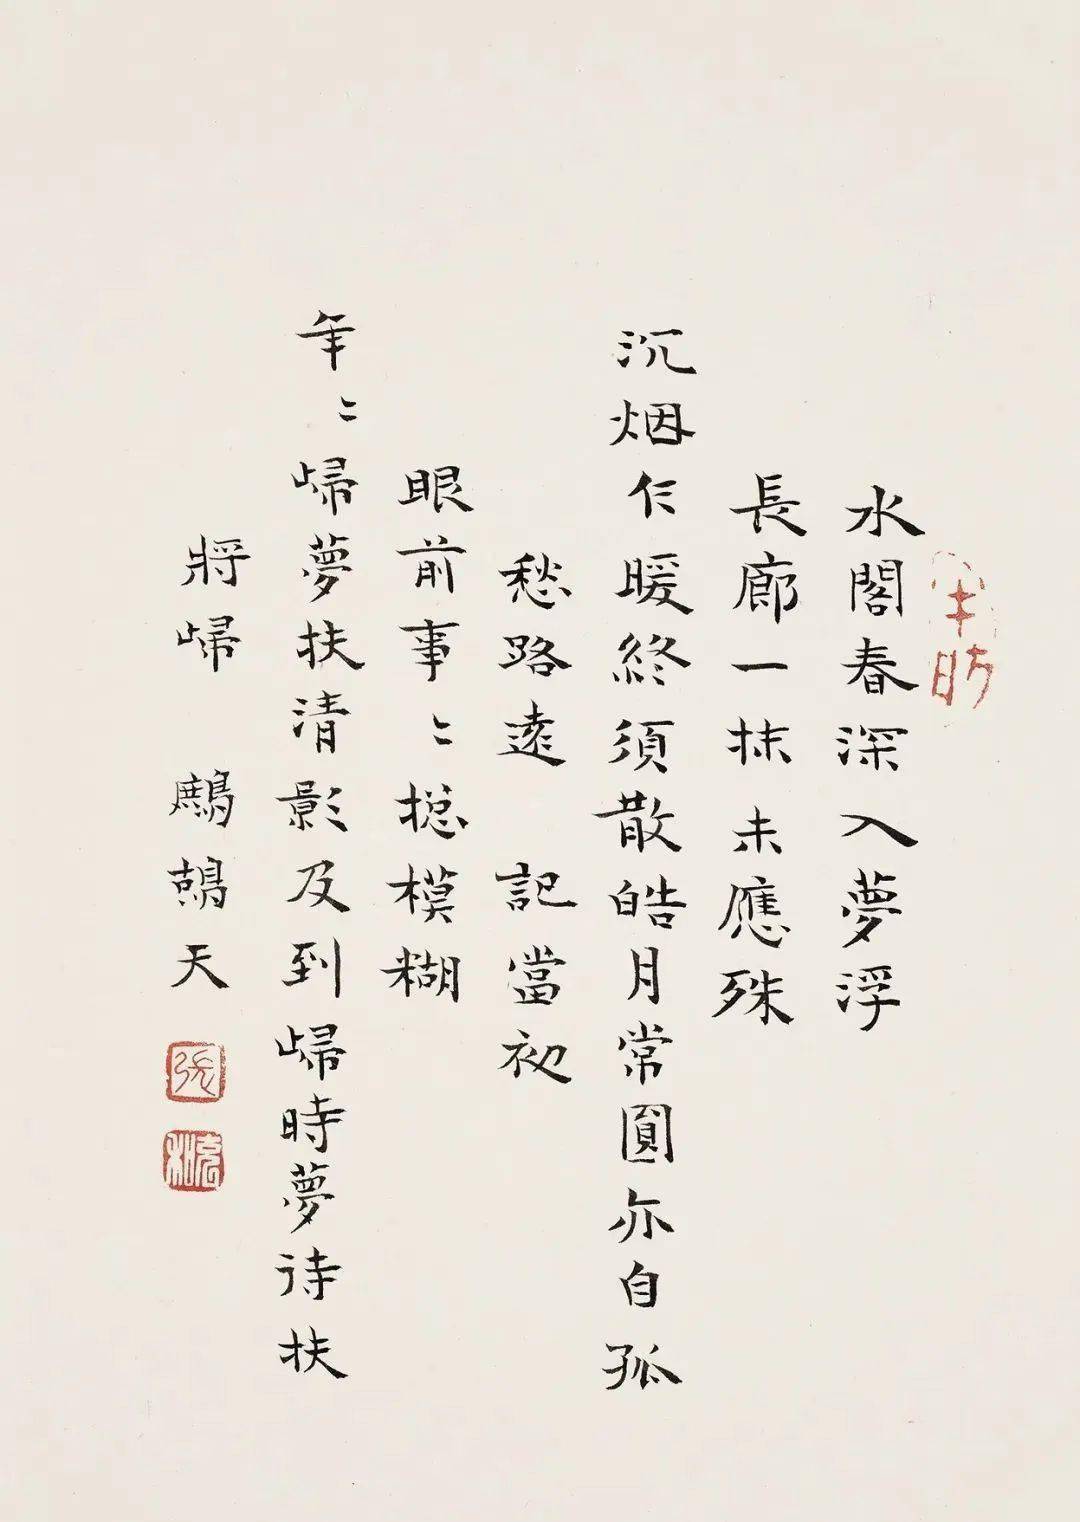 水閣春深入夢浮
長廊一抹未應殊
沉烟乍暖終須散皓月常圓亦自孤
愁路遠 記當初
眼前事〻摠模糊
年〻歸夢扶清影及到歸時夢待扶
將歸 鷓鴣天
張